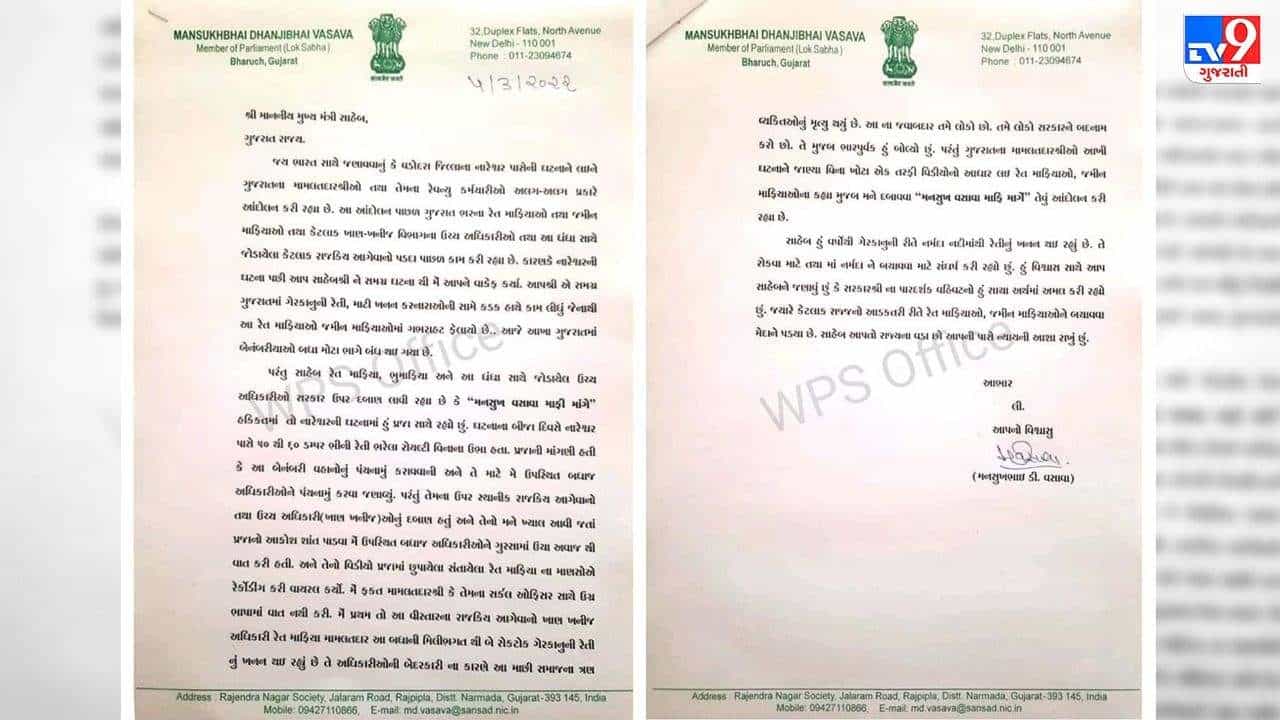 MANSUKHBHAI DHANJIBHAI VASAVA
Member of Parliament (Lok Sabha)
Bharuch, Gujarat
सत्यमेव जयते
32,Duplex Flats, North Avenue
New Delhi - 110 001
Phone : 011-23094674
૫/3/૨૦૨૨
શ્રી માનનીય મુખ્ય મંત્રી સાહેબ,
ગુજરાત રાજ્ય.
જય ભારત સાથે જણાવવાનું કે વડોદરા જિલ્લાના નારેશ્વર પાસેની ઘટનાને લઇને
ગુજરાતના મામલતદારશ્રીઓ તથા તેમના રેવન્યુ કર્મચારીઓ અલગ-અલગ પ્રકારે
આંદોલન કરી રહ્યા છે. આ આંદોલન પાછળ ગુજરાત ભરના રેત માફિયાઓ તથા જમીન
માફિયાઓ તથા કેટલાક ખાણ-ખનીજ વિભાગના ઉચ્ચ અધિકારીઓ તથા આ ધંધા સાથે
જોડાયેલા કેટલાક રાજકિય આગેવાનો પડદા પાછળ કામ કરી રહ્યા છે. કારણકે નારેશ્વરની
ઘટના પછી આપ સાહેબશ્રી ને સમગ્ર ઘટના થી મેં આપને વાકેફ કર્યા. આપશ્રી એ સમગ્ર
ગુજરાતમાં ગેરકાનુની રેતી, માટી ખનન કરનારાઓની સામે કડક હાથે કામ લીધું જેનાથી
આ રેત માફિયાઓ જમીન માફિયાઓમાં ગભરાહટ ફેલાયો છે.. આજે આખા ગુજરાતમાં
બેનંબરીયાઓ બધા મોટા ભાગે બંધ થઇ ગયા છે.
પરંતુ સાહેબ રેત માફિયા, ભુમાફિયા અને આ ધંધા સાથે જોડાયેલ ઉચ્ચ
અધિકારીઓ સરકાર ઉપર દબાણ લાવી રહ્યા છે કે “મનસુખ વસાવા માફી માંગે”
હકિકતમાં તો નારેશ્વરની ઘટનામાં હું પ્રજા સાથે રહ્યો છું. ઘટનાના બીજા દિવસે નારેશ્વર
પાસે ૫૦ થી ૬૦ ડમ્પર ભીની રેતી ભરેલા રોયલ્ટી વિનાના ઉભા હતા. પ્રજાની માંગણી હતી
કે આ બેનંબરી વાહનોનું પંચનામું કરાવવાની અને તે માટે મે ઉપસ્થિત બધાજ
અધિકારીઓને પંચનામું કરવા જણાવ્યું. પરંતું તેમના ઉપર સ્થાનીક રાજકિય આગેવાનો
તથા ઉચ્ચ અધિકારી(ખાણ ખનીજ)ઓનું દબાણ હતું અને તેનો મને ખ્યાલ આવી જતાં
પ્રજાનો આક્રોશ શાંત પાડવા મેં ઉપસ્થિત બધાજ અધિકારીઓને ગુસ્સામાં ઉંચા અવાજ થી
વાત કરી હતી. અને તેનો વિડીયો પ્રજામાં છુપાયેલા સંતાયેલા રેત માફિયા ના માણસોએ
રેકોર્ડીંગ કરી વાયરલ કર્યો. મેં ફકત મામલતદારશ્રી કે તેમના સર્કલ ઓફિસર સાથે ઉગ્ર
ભાષામાં વાત નથી કરી. મેં પ્રથમ તો આ વીસ્તારના રાજકિય આગેવાનો ખાણ ખનીજ
અધિકારી રેત માફિયા મામલતદાર આ બધાની મિલીભગત થી બે રોકટોક ગેરકાનુની રેતી
નું ખનન થઇ રહ્યું છે તે અધિકારીઓની બેદરકારી ના કારણે આ માછી સમાજના ત્રણ
WPS Office
Address : Rajendra Nagar Society, Jalaram Road, Rajpipla, Distt. Narmada, Gujarat-393 145, India
Mobile: 09427110866, E-mail: md.vasava@sansad.nic.in
MANSUKHBHAI DHANJIBHAI VASAVA
Member of Parliament (Lok Sabha)
Bharuch, Gujarat
सत्यमेव जयते
32,Duplex Flats, North Avenue
New Delhi - 110 001
Phone : 011-23094674
વ્યકિતઓનું મૃત્યુ થયું છે. આ ના જવાબદાર તમે લોકો છો. તમે લોકો સરકારને બદનામ
કરો છો. તે મુજબ ભારપુર્વક હું બોલ્યો છું. પરંતું ગુજરાતના મામલતદારશ્રીઓ આખી
ઘટનાને જાણ્યા વિના ખોટા એક તરફી વિડીયોનો આધાર લઇ રેત માફિયાઓ, જમીન
માફિયાઓના કહ્યા મુજબ મને દબાવવા “મનસુખ વસાવા માફિ માગે” તેવું આંદોલન કરી
રહ્યા છે.
સાહેબ હું વર્ષોથી ગેરકાનુની રીતે નર્મદા નદીમાંથી રેતીનું ખનન થઇ રહ્યું છે. તે
રોકવા માટે તથા માં નર્મદા ને બચાવવા માટે સંઘર્ષ કરી રહ્યો છું. હું વિશ્વાસ સાથે આપ
સાહેબને જણાવું છું કે સરકારશ્રી ના પારદર્શક વહિવટનો હું સાચા અર્થમાં અમલ કરી રહ્યો
છું. જ્યારે કેટલાક રાજજનો આડકતરી રીતે રેત માફિયાઓ, જમીન માફિયાઓને બચાવવા
મેદાને પડયા છે. સાહેબ આપતો રાજ્યના વડા છો આપની પાસે ન્યાયની આશા રાખું છું.
આભાર
લી.
આપનો વિશ્વાસુ
(મનસુખભાઇ ડી. વસાવા)
WPS Office
Address : Rajendra Nagar Society, Jalaram Road, Rajpipla, Distt. Narmada, Gujarat-393 145, India
Mobile: 09427110866, E-mail: md.vasava@sansad.nic.in
TV9
ગુજરાતી